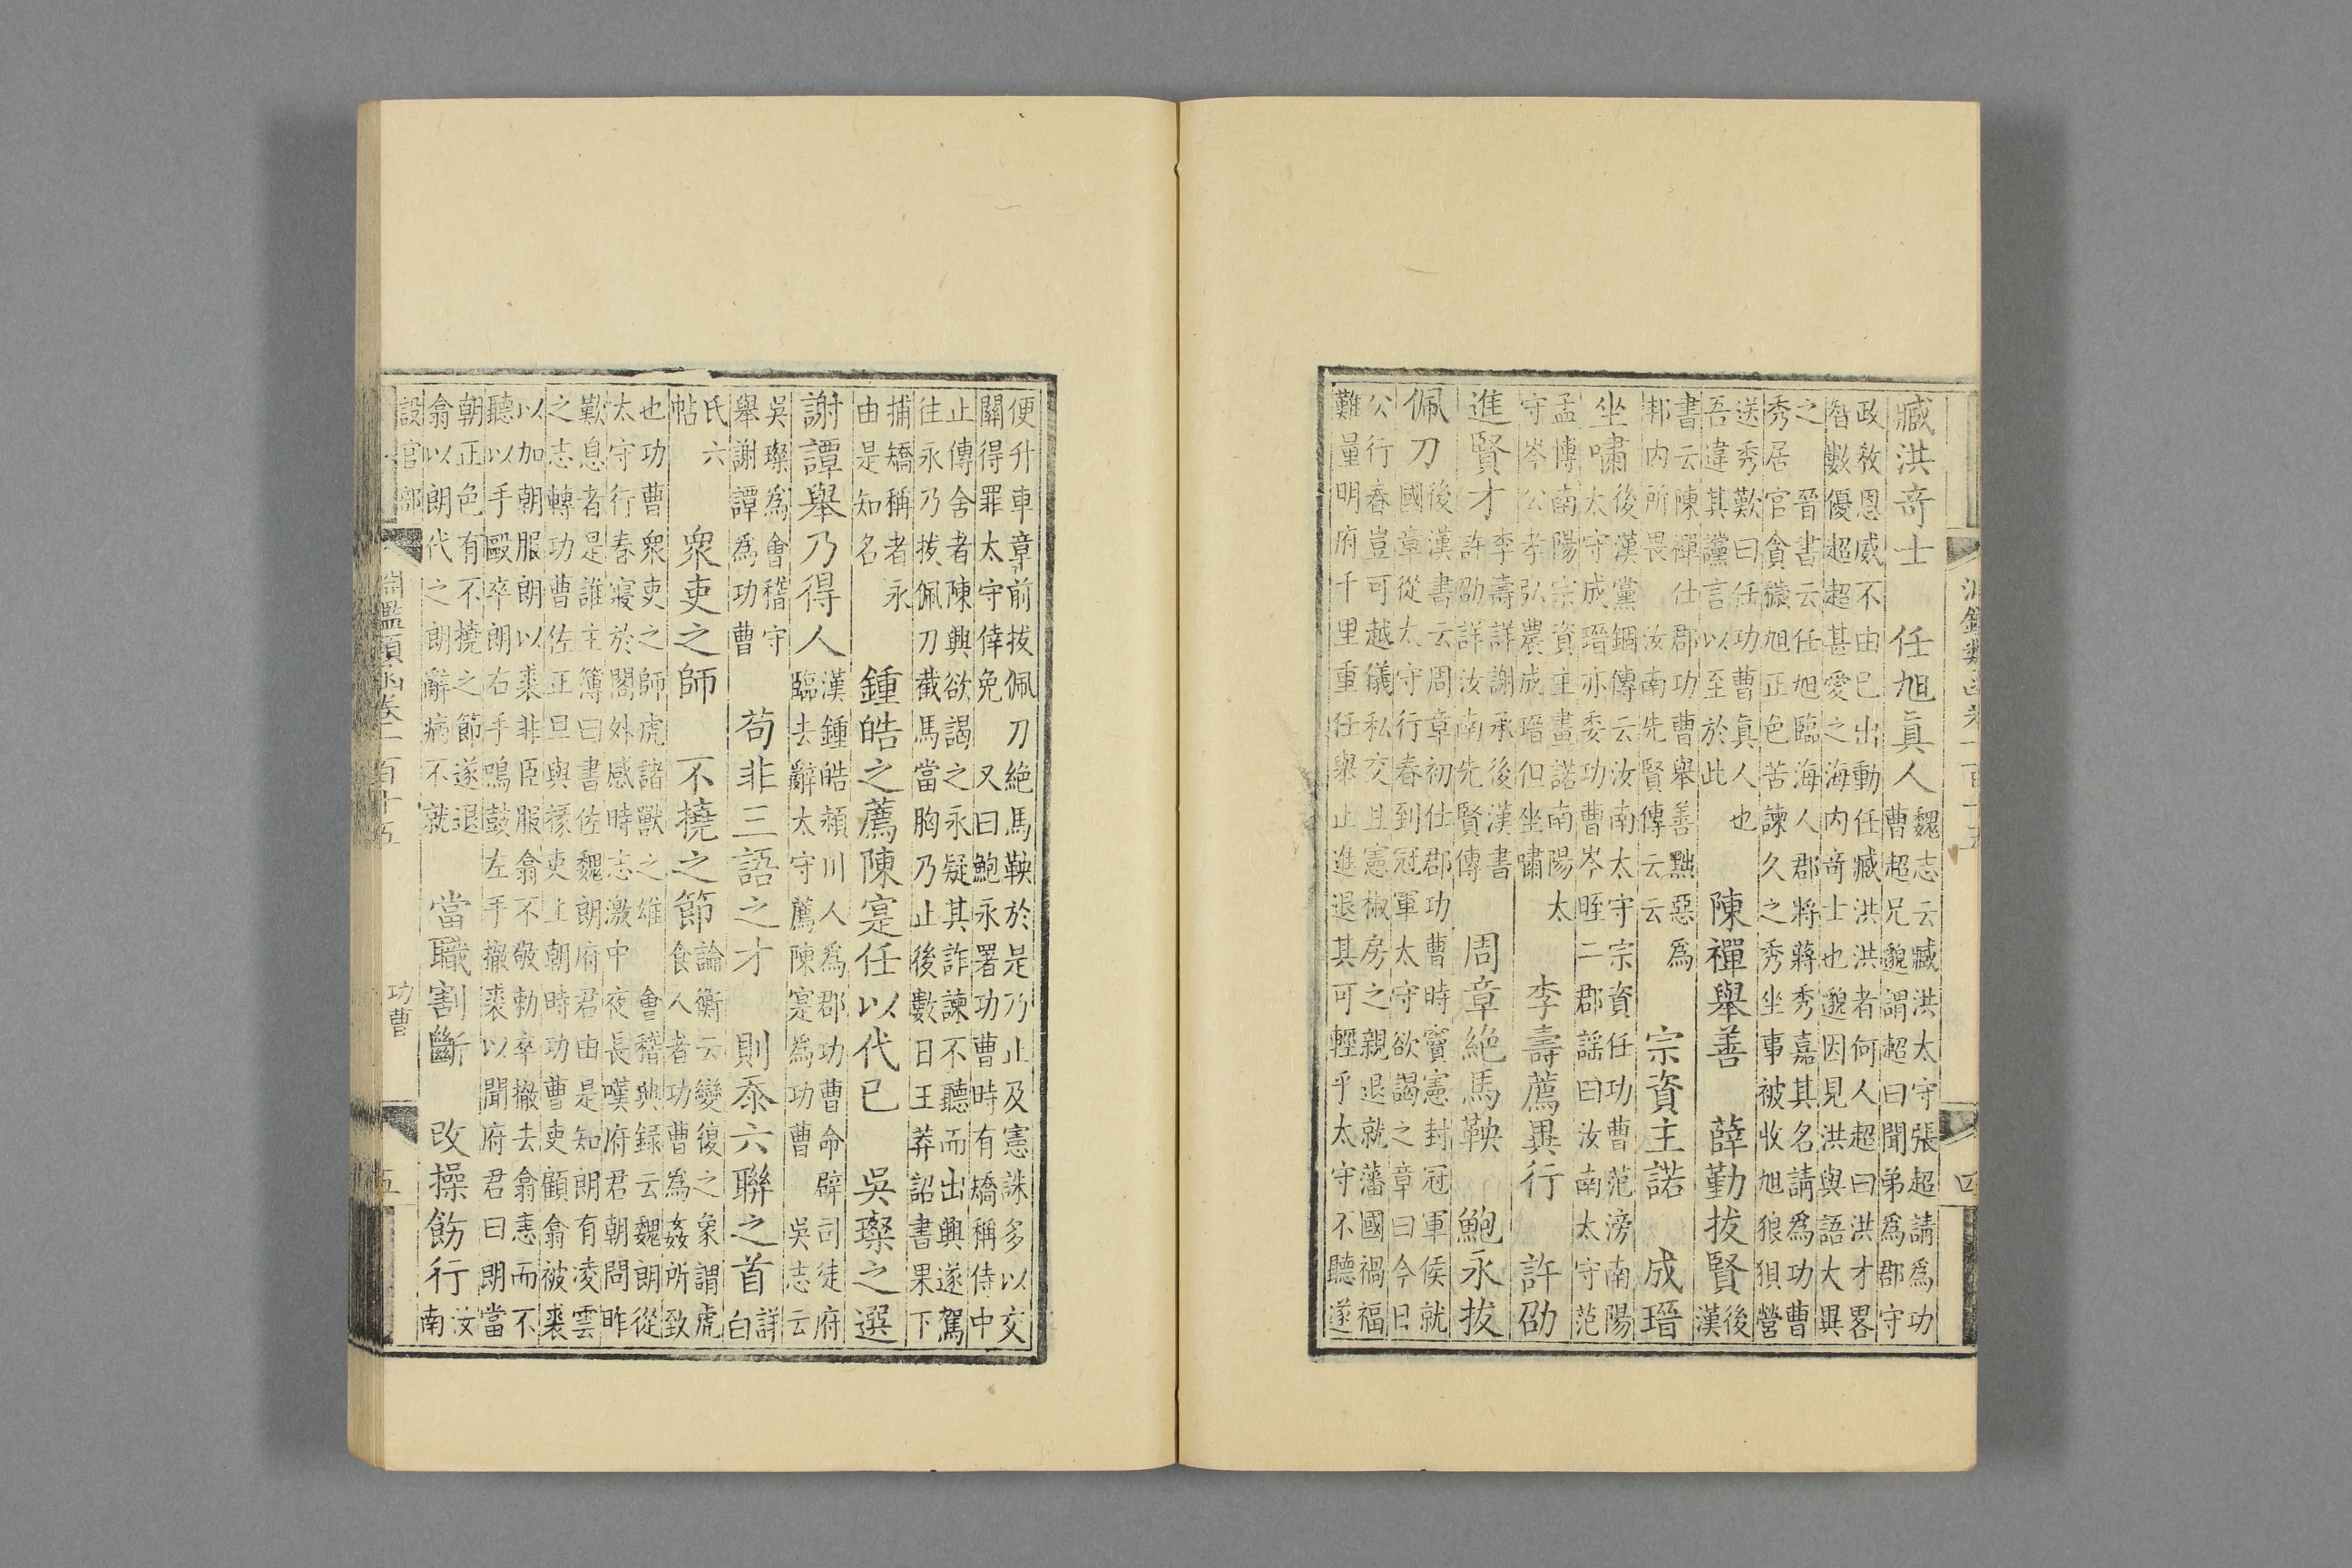 淵鑑類函卷一百十五
四
臧洪奇士　任旭真人
魏志云臧洪太守張超請為功
曹超兄邈謂超曰聞弟為郡守
政教恩威不由已出動任臧洪洪者何人超曰洪才畧
智數優超超甚愛之海内奇士也邈因見洪與語大異
之　晉書云任旭臨海人郡將蔣秀嘉其名請為功曹
秀居官貪穢旭正色苦諫久之秀坐事被收旭狼狽營
送秀歎曰任功曹真人也
吾違其讜言以至於此
陳禪舉善　薛勤拔賢
後
漢
書云陳禪仕郡功曹舉善黜惡為
邦内所畏　汝南先賢傳云云
宗資主諾　成瑨
坐嘯
後漢黨錮傳云汝南太守宗資任功曹范滂南陽
太守成瑨亦委功曹岑晊二郡謠曰汝南太守范
孟博南陽宗資主畫諾南陽太
守岑公孝弘農成瑨但坐嘯
李壽薦異行　許劭
進賢才
李壽詳謝承後漢書
許劭詳汝南先賢傳
周章絶馬鞅　鮑永拔
佩刀
後漢書云周章初仕郡功曹時竇憲封冠軍侯就
國章從太守行春到冠軍太守欲謁之章曰今日
公行春豈可越儀私交且憲椒房之親退就藩國禍福
難量明府千里重任舉止進退其可輕乎太守不聽遂
便升車章前拔佩刀絶馬鞅於是乃止及憲誅多以交
關得罪太守倖免　又曰鮑永署功曹時有矯稱侍中
止傳舍者陳興欲謁之永疑其詐諫不聽而出興遂駕
往永乃拔佩刀截馬當胸乃止後數日王莽詔書果下
捕矯稱者永
由是知名
鍾皓之薦陳寔任以代已　吳璨之選
謝譚舉乃得人
漢鍾皓潁川人為郡功曹命辟司徒府
臨去辭太守薦陳寔為功曹　吳志云
吳璨為會稽守
舉謝譚為功曹
苟非三語之才　則忝六聯之首
詳
白
氏六
帖
衆吏之師　不撓之節
論衡云變復之象謂虎
食人者功曹為姦所致
也功曹衆吏之師虎諸獸之雄　會稽典録云魏朗從
太守行春寢於閣外感時志激中夜長嘆府君朝問昨
歎息者是誰主簿曰書佐魏朗府君由是知朗有凌雲
之志轉功曹佐正旦與掾吏上朝時功曹吏顧翕被裘
以加朝服朗以裘非臣服翕不敬勅卒撤去翕恚而不
聽以手毆卒朗右手鳴鼓左手撤裘以聞府君曰朗當
朝正色有不撓之節遂退
翕以朗代之朗辭病不就
當職割斷　改操飭行
汝
南
設官部
淵鑑類函卷一百十五
功曹
五